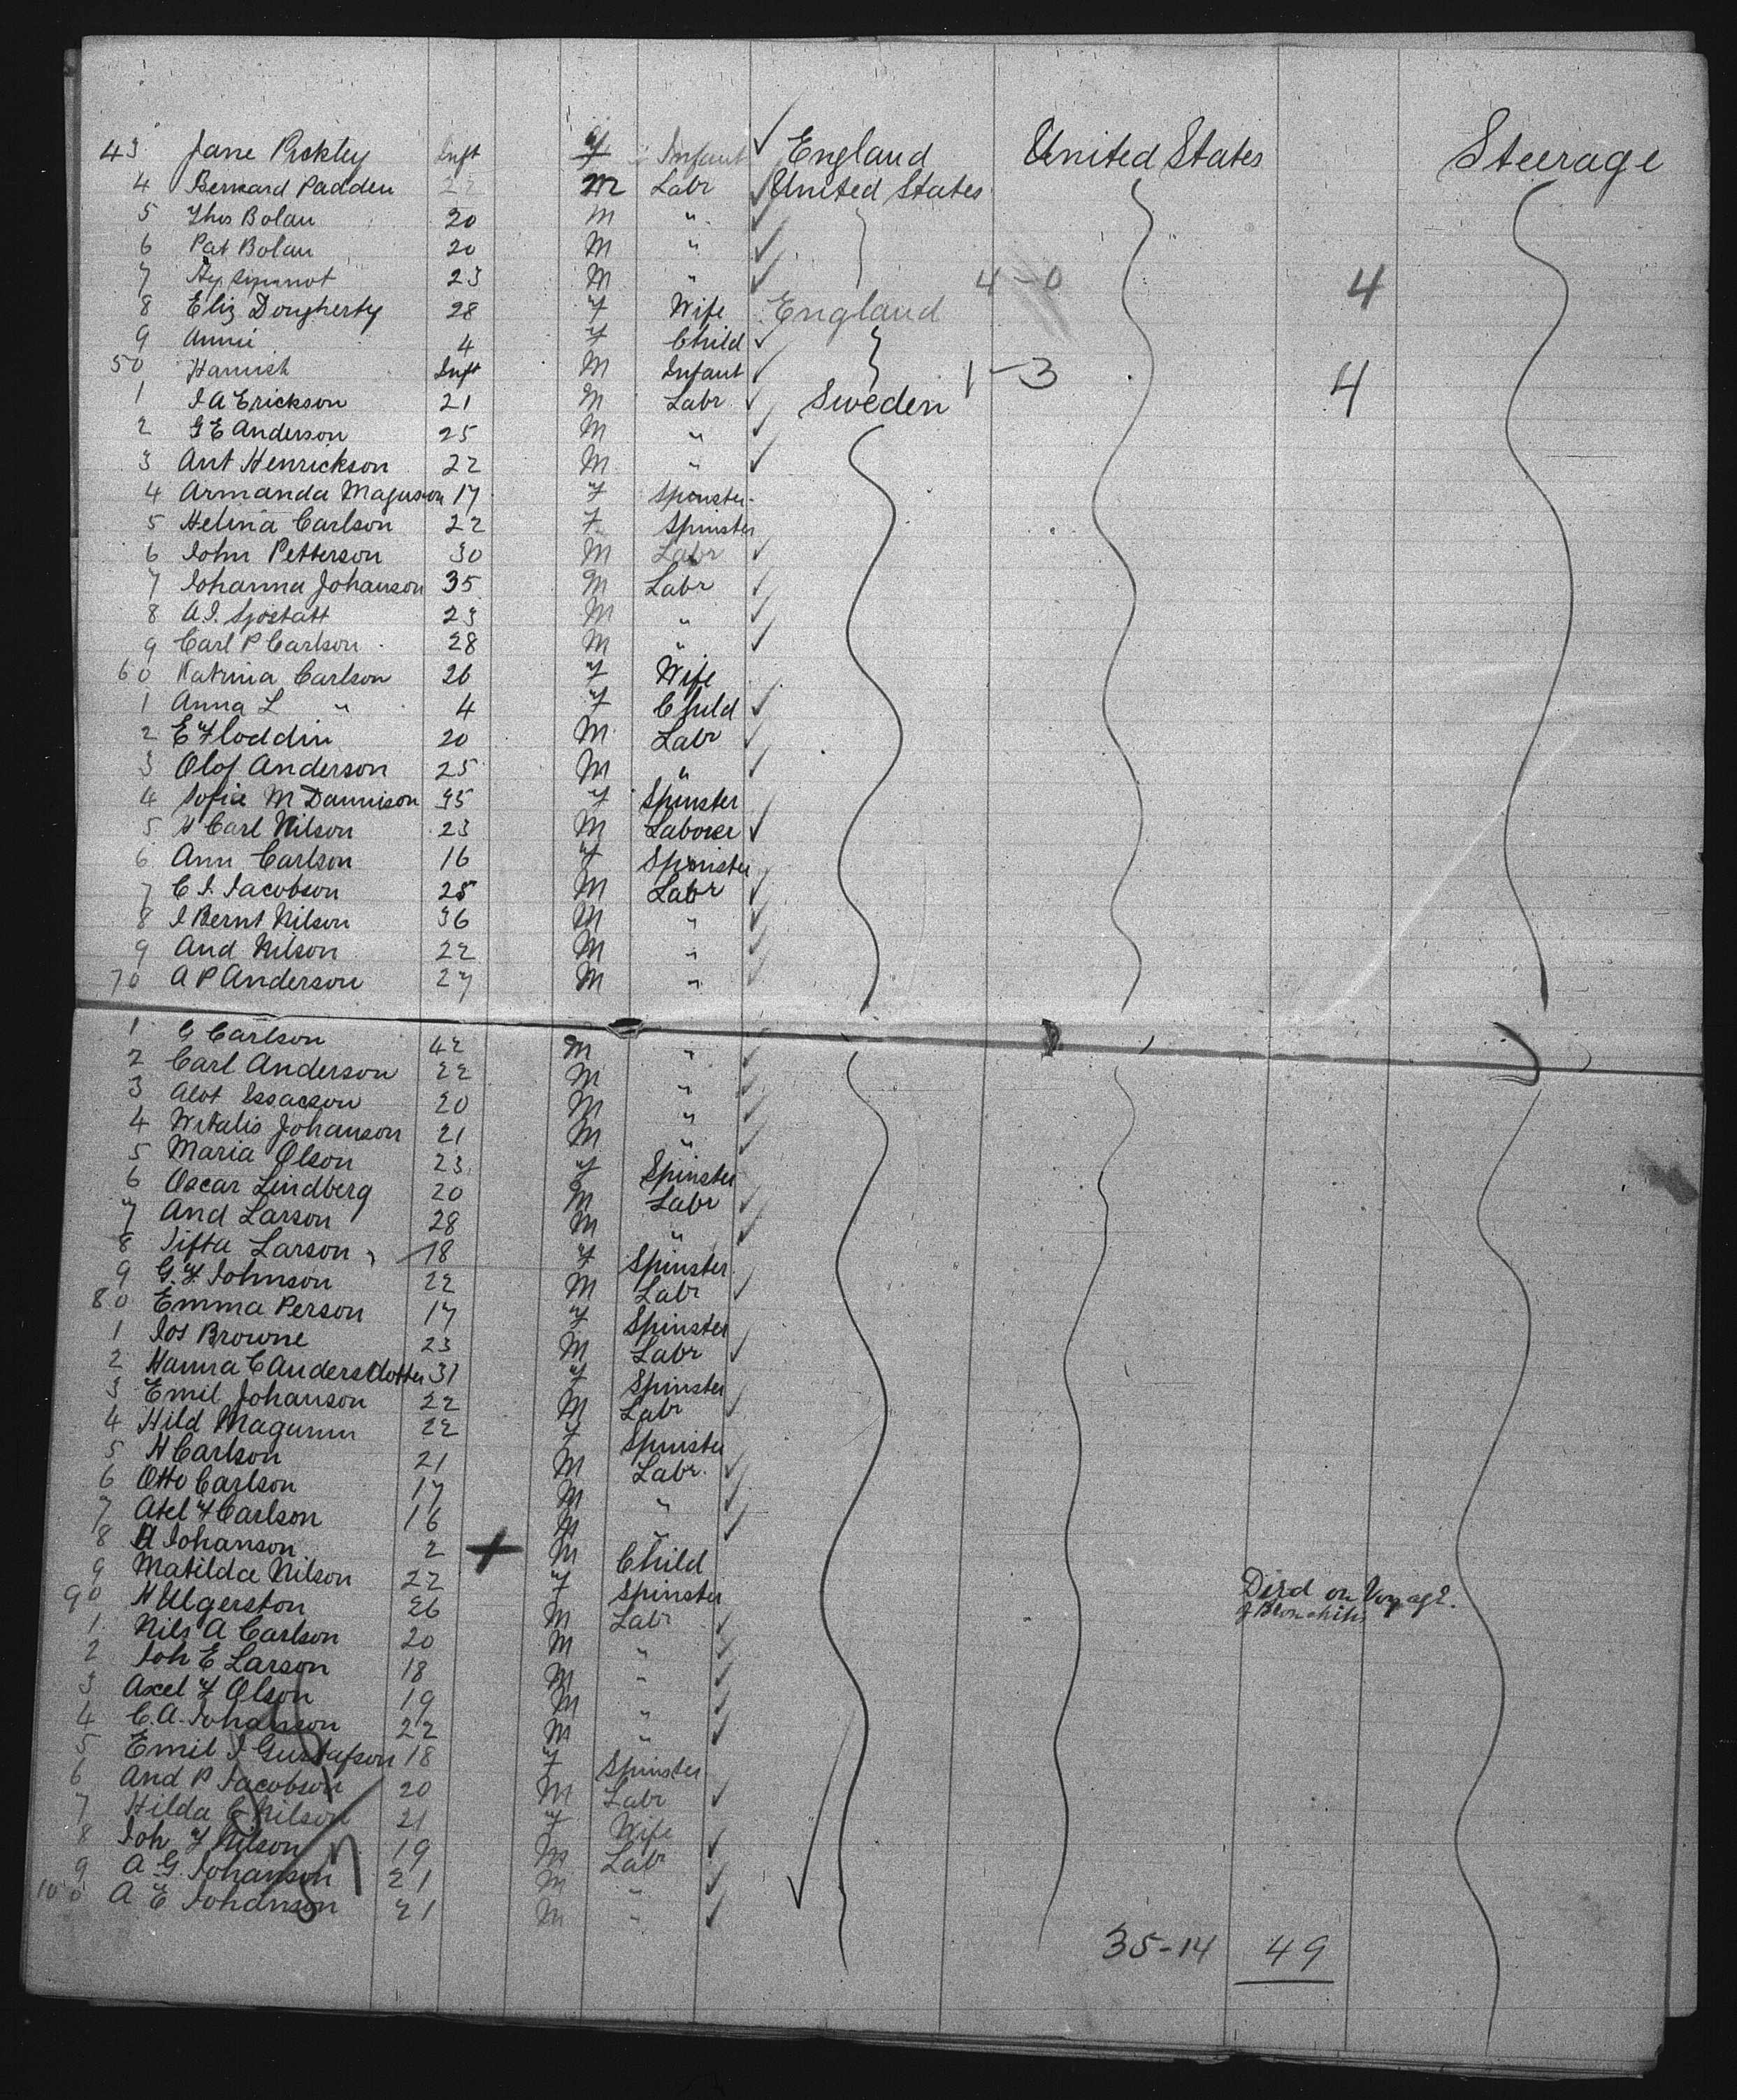 43 Jane Pickley Inft f Infant ✓ England United States Steerage
4 Bernard Padden 22 M Labr ✓ United States
5 Thos Bolan 20 M " ✓
6 Pat Bolan 20 M " ✓
7 23 M " ✓ 4-0 4
8 Eliz Dougherty 28 f Wife England
9 Annie 4 f Child ✓
50 Hamish Inft M Infant ✓ 1-3 4
1 I A Erickson 21 M Labr ✓ Sweden
2 G E Anderson 25 M " ✓
3 Ant Henrickson 22 M " ✓
4 Armanda Maguson 17 f Spinster
5 Helina Carlson 22 f Spinster
6 John Petterson 30 M Labr ✓
7 Johanna Johanson 35 M Labr ✓
8 A I. Sjostatt 23 M " ✓
9 Carl P Carlson 28 M " ✓
60 Katrina Carlson 26 f Wife
1 Anna L " 4 f Child ✓
2 E Floddin 20 M Labr ✓
3 Olof Anderson 25 M " ✓
4 Sofia M Dannison f Spinster
5 H Carl Nilson 23 M Laborer ✓
6 Ann Carlson 16 f Spinster
7 C I. Jacobson 25 M Labr ✓
8 I Bernt Nilson 36 M " ✓
9 And Nilson 22 M " ✓
70 A P Anderson 27 M " ✓
1 G Carlson 42 M " ✓
2 Carl Anderson 22 M " ✓
3 Alot Issacson 20 M " ✓
4 Witalis Johanson 21 M " ✓
5 Maria Olson 23 f Spinster
6 Oscar Lindberg 20 M Labr ✓
7 And Larson 28 M " ✓
8 Larson 18 f Spinster
9 G. F. Johnson 22 M Labr ✓
80 Emma Person 17 f Spinster
1 Jos Browne 23 M Labr ✓
2 Hanna C Andersdotter 31 f Spinster
3 Emil Johanson 22 M Labr ✓
4 Hild Magunn 22 f Spinster
5 H Carlson 21 M Labr ✓
6 Otto Carlson 17 M " ✓
7 Axel F Carlson 16 M " ✓
8 A Johanson 2 + M Child
9 Matilda Nilson 22 f Spinster Died on Voyage
90 H Ulgerston 26 M Labr ✓ of Bronchitis
1 Nils A Carlson 20 M " ✓
2 Joh E Larson 18 M " ✓
3 Axel F Olson 19 M " ✓
4 C. A. Johanson 22 M " ✓
5 Emil I Gustafson 18 f Spinster
6 And P Jacobson 20 M Labr ✓
7 Hilda C Nilson 21 f Wife
8 Joh F Nilson 19 M Labr ✓
9 A G. Johanson 21 M " ✓
100 A E Johanson 21 M " ✓
35-14 49